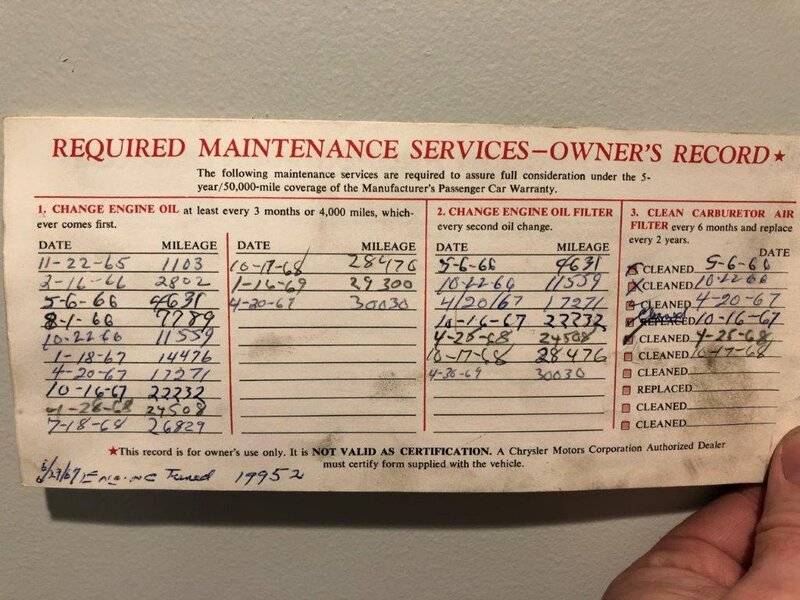 REQUIRED MAINTENANCE SERVICES—OWNER'S RECORD★
The following maintenance services are required to assure full consideration under the 5-
year/50,000-mile coverage of the Manufacturer's Passenger Car Warranty.
1. CHANGE ENGINE OIL at least every 3 months or 4,000 miles, which-
ever comes first.
DATE MILEAGE DATE MILEAGE
11-22-65 1103
2-16-66 2802
5-6-66 4631
8-1-66 7789
10-22-66 11559
1-18-67 14476
4-20-67 17271
10-16-67 22232
4-28-68 24508
7-18-68 26829
10-17-68 28476
1-16-69 29300
4-20-67 30030
2. CHANGE ENGINE OIL FILTER
every second oil change.
DATE MILEAGE
5-6-66 4631
10-22-66 11559
4/20/67 17271
10-16-67 22232
4-25-68 24508
10-17-68 28476
4-30-69 30030
3. CLEAN CARBURETOR AIR
FILTER every 6 months and replace
every 2 years.
DATE
CLEANED 5-6-66
CLEANED 10-22-66
CLEANED 4-20-67
REPLACED 10-16-67
CLEANED 4-25-68
CLEANED 10-17-68
CLEANED
REPLACED
CLEANED
CLEANED
★This record is for owner's use only. It is NOT VALID AS CERTIFICATION. A Chrysler Motors Corporation Authorized Dealer
must certify form supplied with the vehicle.
6/27/67 Engine Tuned 19952